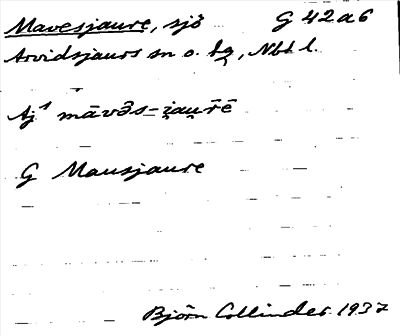 Mavesjaure, sjö G 42 a 6
Arvidsjaurs sn o. tg, Nbt l.
Aj¹ māvǝs-i̯au̯rē
G Mausjaure
Björn Collinder 1937